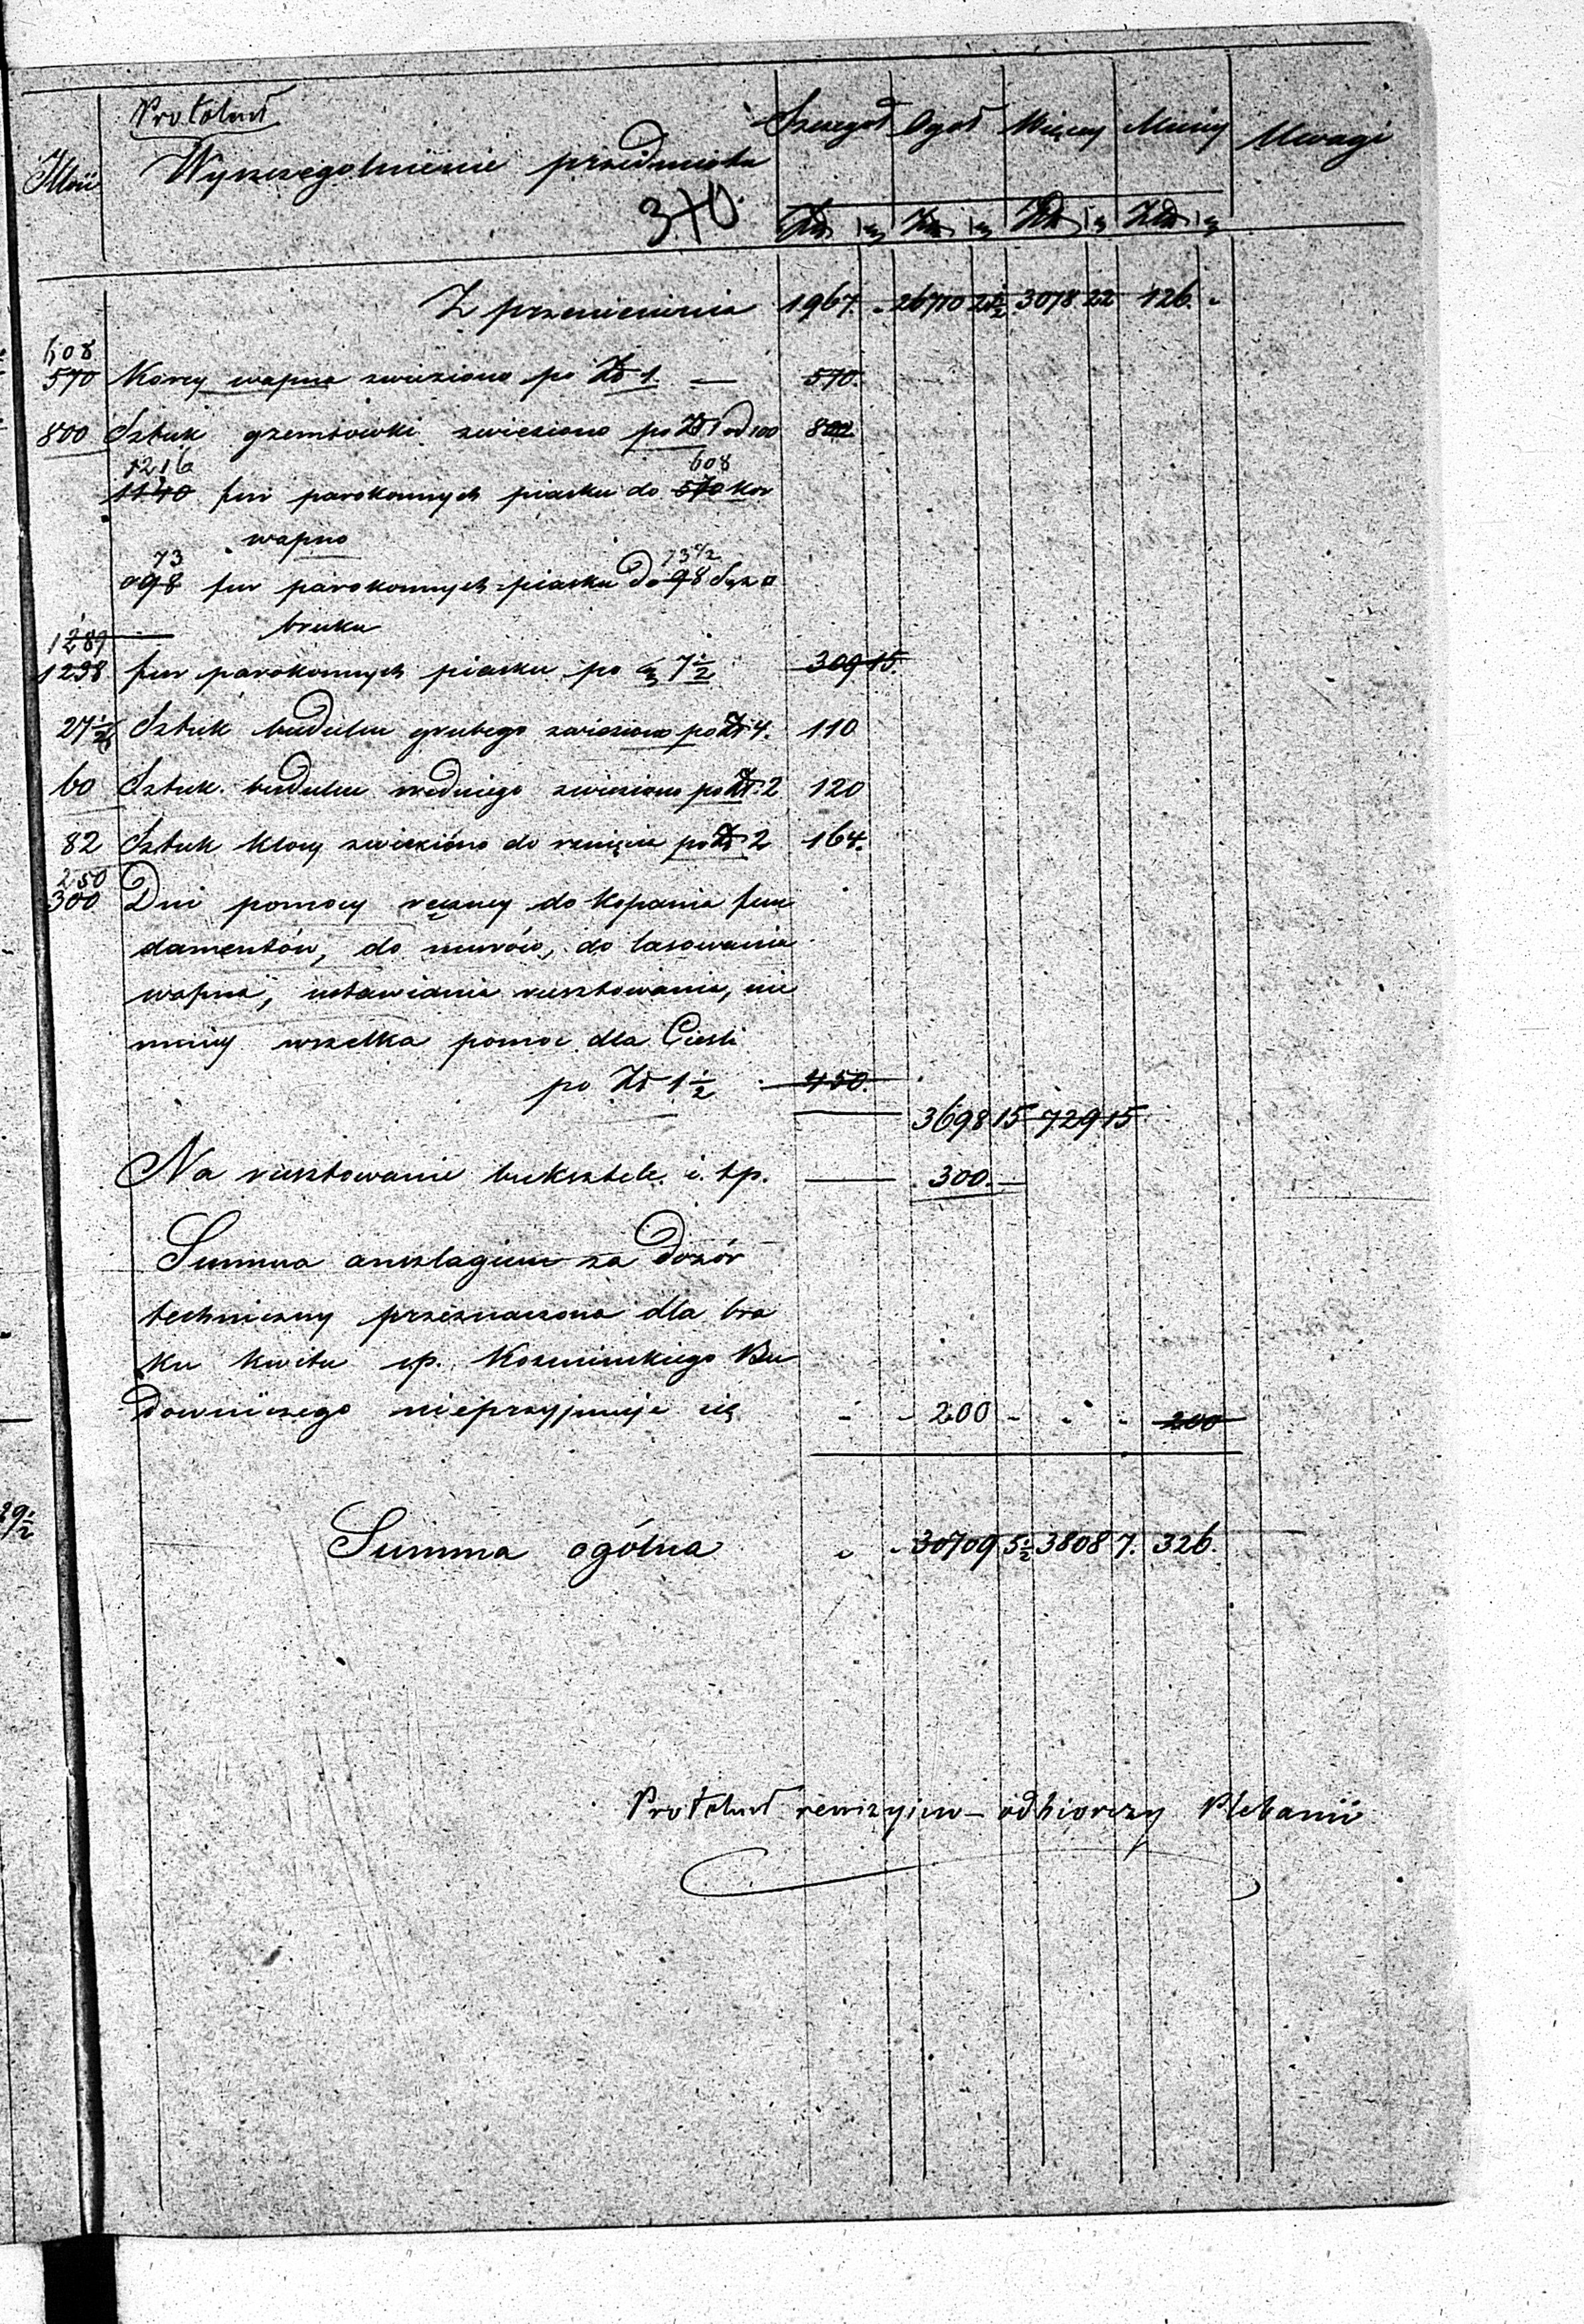 Protokuł
Ilość Wyszczególnienie przedmiotu Szczegół Ogół Więcej Mniej Uwagi
370. Zł g Zł g Zł g Zł g
Z przeniesienia 1967. „ 26710 20½ 3078 22 126. „
608
570 Korcy wapna zwieziono po Zł 1. — 570.
800 Sztuk gzemsówki zwieziono po Zł 1 od 100 8
1216 608
1140 fur parokonnych piasku do 570 kor
wapno
73 73½
a 98 fur parokonnych piasku do 98 Sąż □
bruku
1289
1238 fur parokonnych piasku po g 7½ 309 15.
27½ Sztuk budulcu grubego zwieziono po Zł 4. 110
60 Sztuk. budulcu średniego zwieziono po Zł. 2 120
82 Sztuk klocy zwieziono do rznięcia po Zł 2 164.
250
300 Dni pomocy ręczney do kopania fun
damentów, do murów, do lasowania
wapna, ustawiania rusztowania, nie
mniey wszelka pomoc dla Cieśli
po Zł 1½ 450.
3698 15 729 15
Na rusztowanie buksztele. i. t.p. 300. —
Summa anszlagiem za dozór
techniczny przeznaczona dla bra
ku kwitu śp. Kozmińskiego Bu
downiczego nieprzyjmuje się „ „ 200 „ „ „ 200
Summa ogólna „ „ 30709 5½ 3808 7. 326.
Protokuł rewizyjno-odbiorczy Plebanii